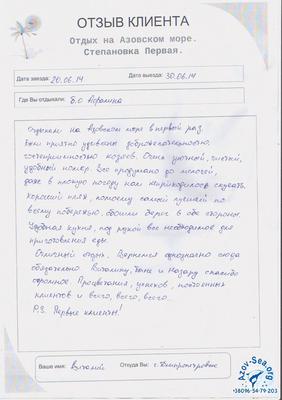 ОТЗЫВ КЛИЕНТА
Отдых на Азовском море.
Степановка Первая.
Дата заезда: 20.06.14 Дата выезда: 30.06.14
Где Вы отдыхали: б.о
Отдыхали на Азовском море в первый раз.
Были приятно удивлены доброжелательностью,
гостеприимностью хозяев. Очень уютный, чистый,
удобный номер. Всё продумано до мелочей,
даже в плохую погоду нам не приходилось скучать.
Хороший пляж, поэтому самый лучший по
всему побережью, обошли берег в обе стороны.
Удобная кухня, под рукой все необходимое для
приготовления еды.
Отличный отдых. Вернемся однозначно сюда
обязательно. Виталику, Тане и Назару спасибо
огромное. Процветания, успехов, постоянных
клиентов и всего, всего, всего...
P.S. Первые клиенты!
Ваше имя: Виталий Откуда Вы: г. Днепропетровск
Azov-Sea.org
+38096-54-79-203